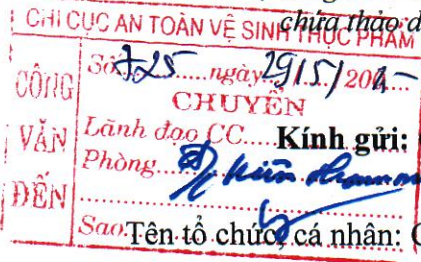 chữa thảo d
CHI CỤC AN TOÀN VỆ SINH THỰC PHẨM
CÔNG VĂN ĐẾN
Số ngày 29/5/20
CHUYỂN
Lãnh đạo CC
Kính gửi:
Phòng
Sao
Tên tổ chức, cá nhân: